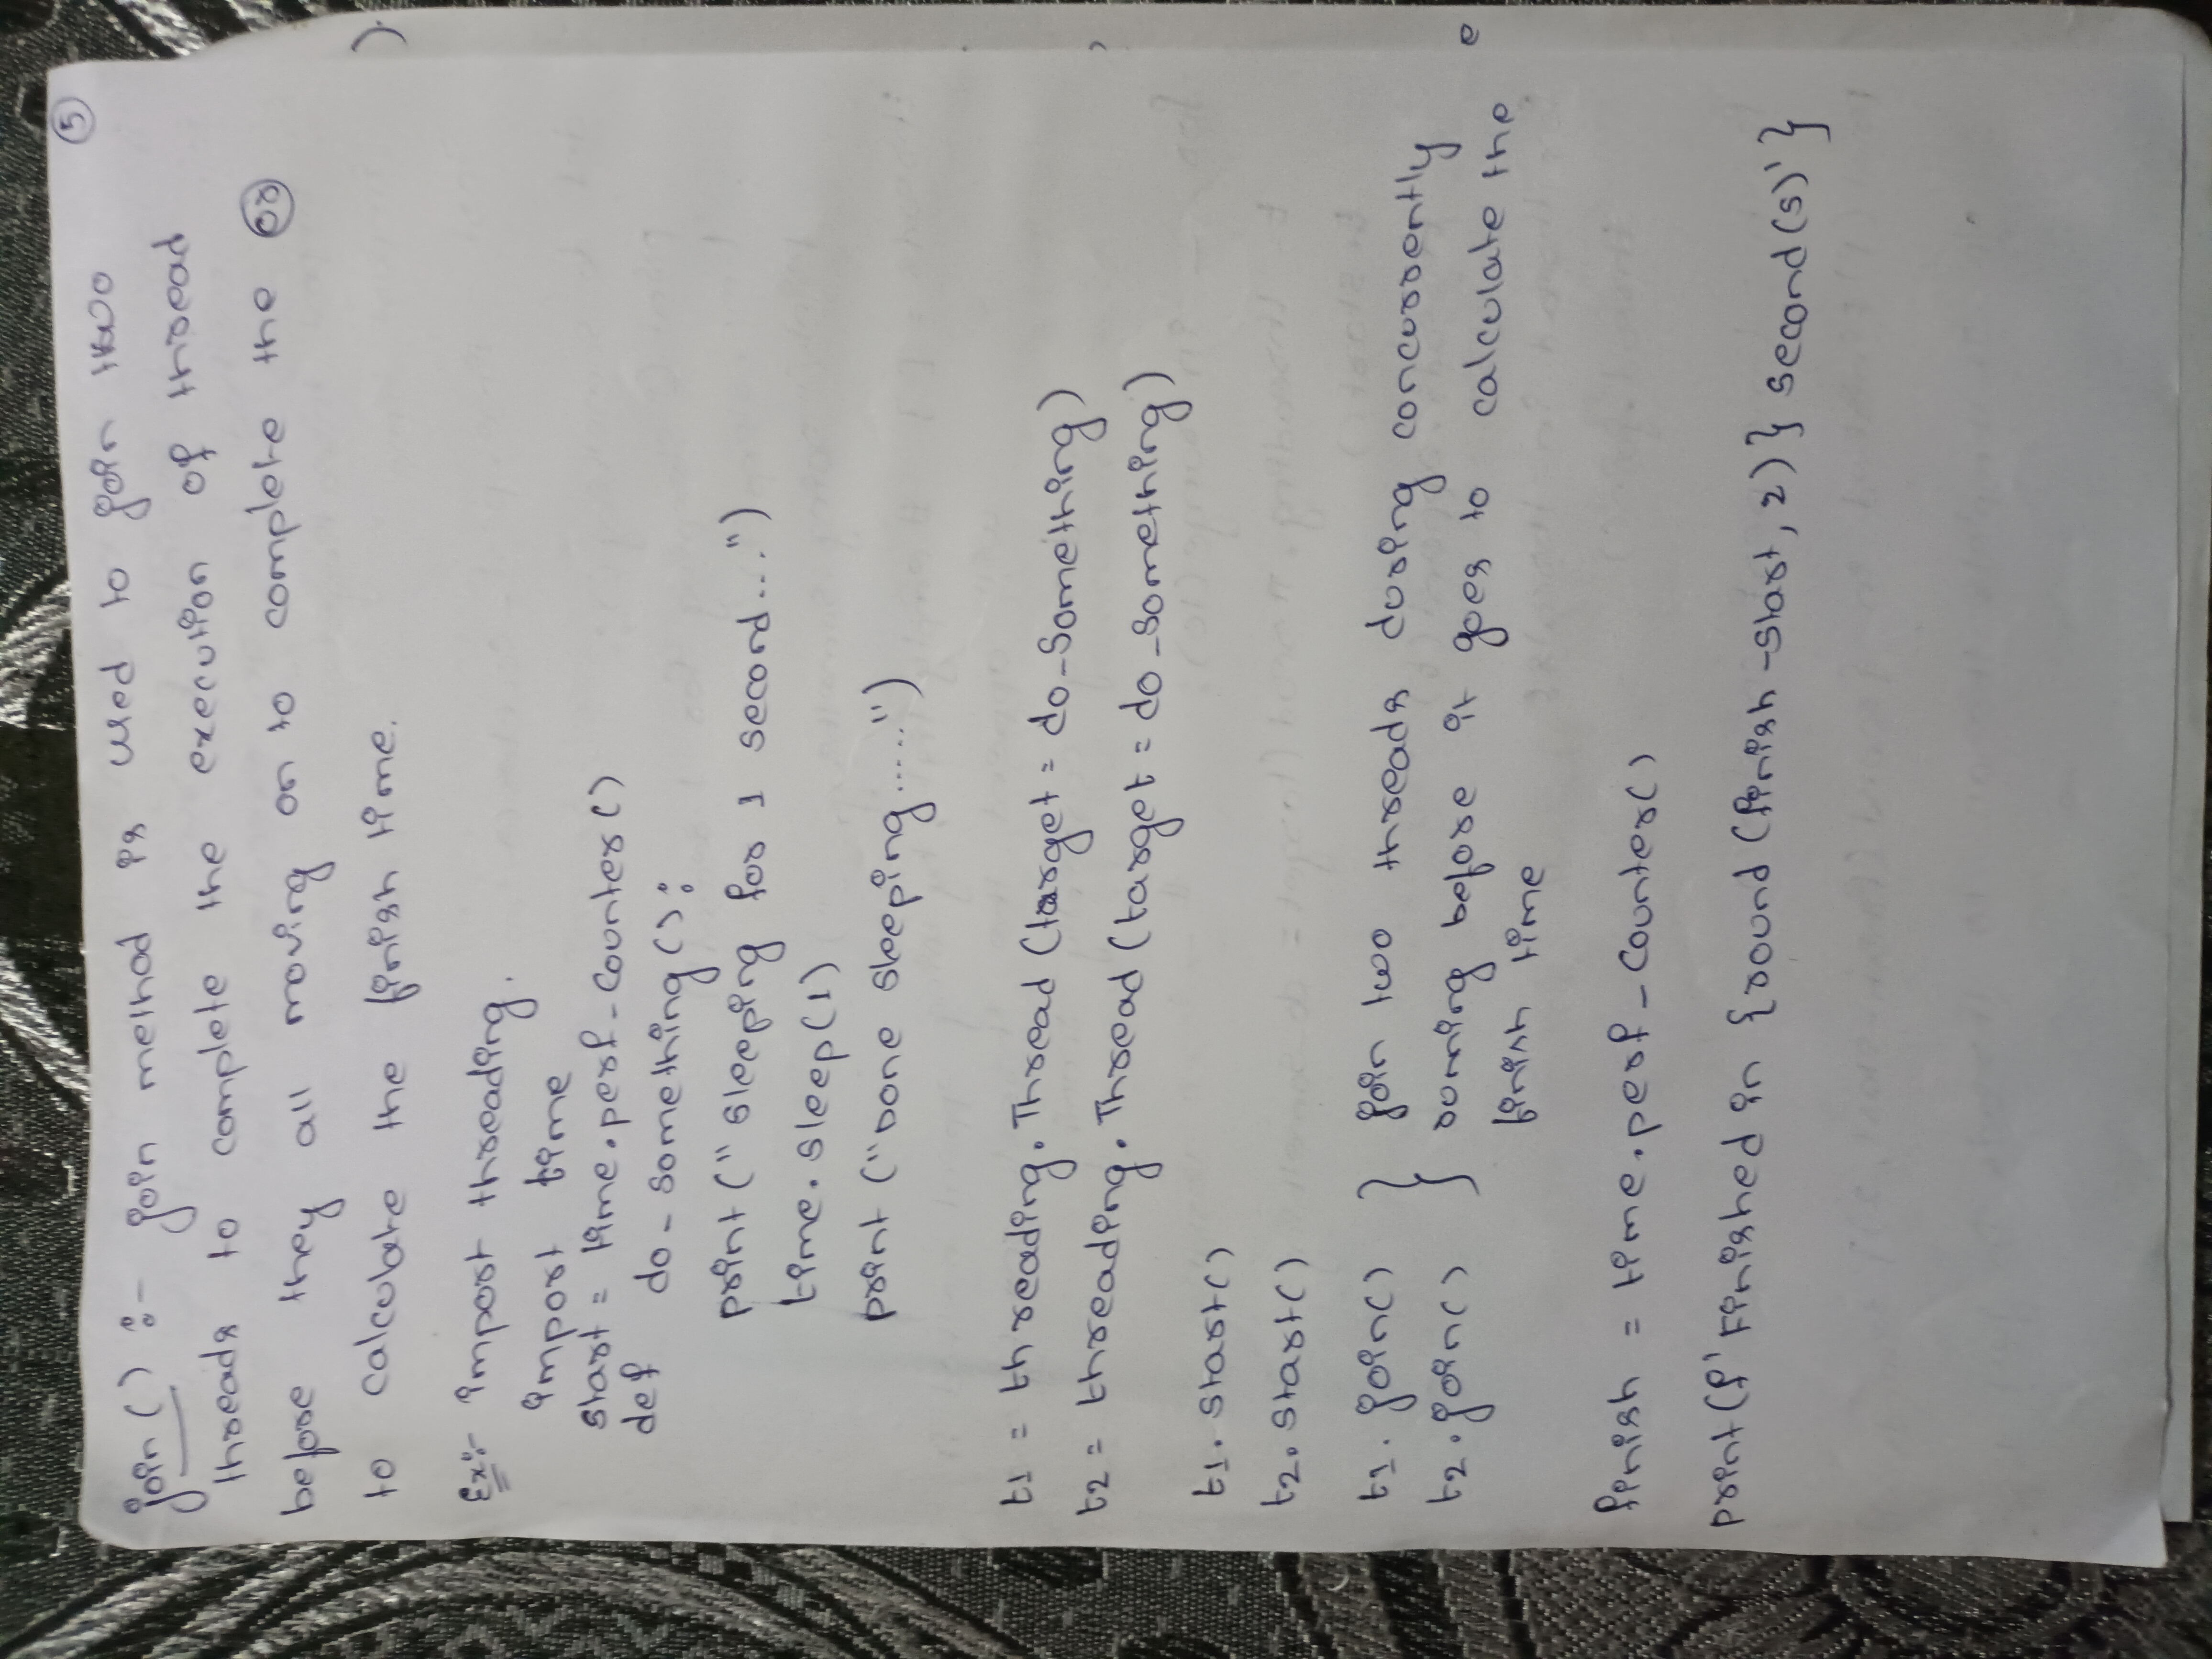 5
join() :- join method is used to join two
threads to complete the execution of thread
before they all moving on to complete the or
to calculate the finish time.
Ex:- import threading.
import time
start = time.perf_counter()
def do_something():
print("sleeping for 1 second...")
time.sleep(1)
print("Done sleeping.....")
t1 = threading.Thread(target = do_something)
t2 = threading.Thread(target = do_something)
t1.start()
t2.start()
t1.join() } join two threads during concurrently
t2.join() running before it goes to calculate the
finish time
finish = time.perf_counter()
print(f'Finished in {round(finish-start, 2)} second(s)'}